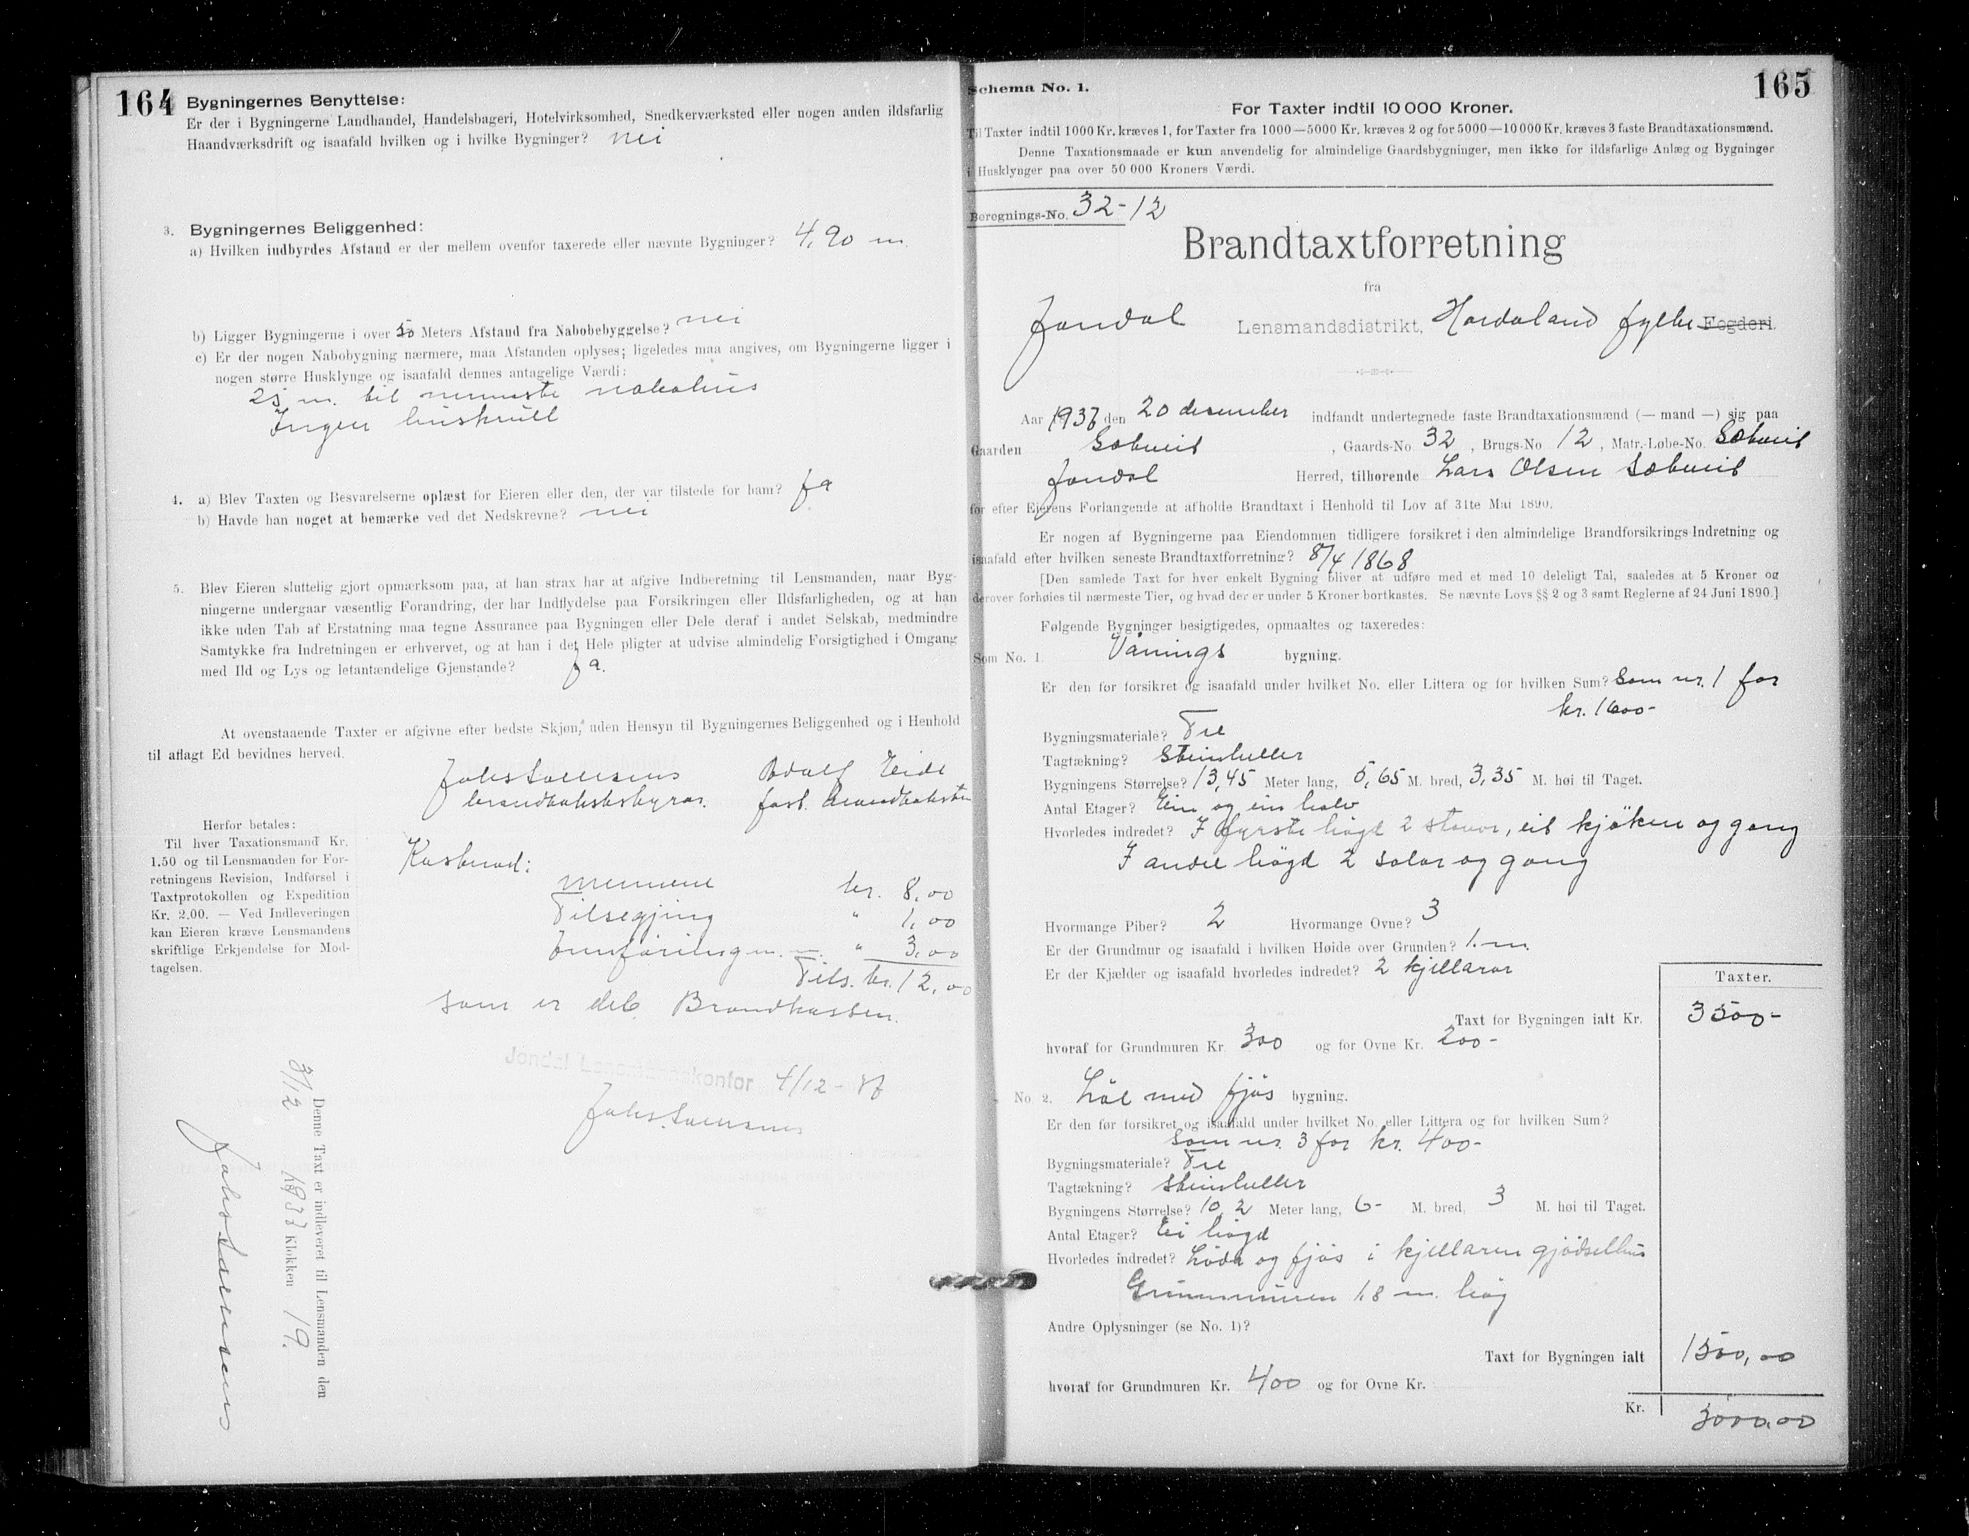 164
Bygningernes Benyttelse:
Er der i Bygningerne Landhandel, Handelsbageri, Hotelvirksomhed, Snedkerværksted eller nogen anden ildsfarlig
Haandværksdrift og isaafald hvilken og i hvilke Bygninger? nei
3. Bygningernes Beliggenhed:
a) Hvilken indbyrdes Afstand er der mellem ovenfor taxerede eller nævnte Bygninger? 4,90 m.
b) Ligger Bygningerne i over 50 Meters Afstand fra Nabobebyggelse? nei
c) Er der nogen Nabobygning nærmere, maa Afstanden oplyses; ligeledes maa angives, om Bygningerne ligger i
nogen større Husklynge og isaafald dennes antagelige Værdi:
25 m. til næmeste nabohus
Ingen huskrull
4. a) Blev Taxten og Besvarelserne oplæst for Eieren eller den, der var tilstede for ham? Ja
b) Havde han noget at bemærke ved det Nedskrevne? nei
5. Blev Eieren sluttelig gjort opmærksom paa, at han strax har at afgive Indberetning til Lensmanden, naar Byg-
ningerne undergaar væsentlig Forandring, der har Indflydelse paa Forsikringen eller Ildsfarligheden, og at han
ikke uden Tab af Erstatning maa tegne Assurance paa Bygningen eller Dele deraf i andet Selskab, medmindre
Samtykke fra Indretningen er erhvervet, og at han i det Hele pligter at udvise almindelig Forsigtighed i Omgang
med Ild og Lys og letantændelige Gjenstande? Ja.
At ovenstaaende Taxter er afgivne efter bedste Skjøn, uden Hensyn til Bygningernes Beliggenhed og i Henhold
til aflagt Ed bevidnes herved.
Adolf Eide
Herfor betales:
Til hver Taxationsmand Kr.
1.50 og til Lensmanden for For-
retningens Revision, Indførsel i
Taxtprotokollen og Expedition
Kr. 2.00. — Ved Indleveringen
kan Eieren kræve Lensmandens
skriftlige Erkjendelse for Mod-
tagelsen.
Kostnad:
mennene kr. 8,00
Tilsegjing " 1,00
Innføringen " 3,00
Tils. kr. 12,00
som er bet. Brandkassen.
Jondal Lensmannskontor 4/12-37
Denne Taxt er indleveret til Lensmanden den
3/12 1937 Klokken 19.
165
Schema No. 1.
For Taxter indtil 10 000 Kroner.
Til Taxter indtil 1000 Kr. kræves 1, for Taxter fra 1000—5000 Kr. kræves 2 og for 5000—10 000 Kr. kræves 3 faste Brandtaxationsmænd.
Denne Taxationsmaade er kun anvendelig for almindelige Gaardsbygninger, men ikke for ildsfarlige Anlæg og Bygninger
i Husklynger paa over 50 000 Kroners Værdi.
Beregnings-No. 32-12
Brandtaxtforretning
fra
Jondal Lensmandsdistrikt, Hordaland fylke Fogderi.
Aar 1936 den 20 desember indfandt undertegnede faste Brandtaxationsmænd (— mand —) sig paa
Gaarden Sæbveit, Gaards-No. 32, Brugs-No 12, Matr.-Løbe-No. Sæbveit
Jondal Herred, tilhørende Lars Olsen Sæbveit
for efter Eierens Forlangende at afholde Brandtaxt i Henhold til Lov af 31te Mai 1890.
Er nogen af Bygningerne paa Eiendommen tidligere forsikret i den almindelige Brandforsikrings-Indretning og
isaafald efter hvilken seneste Brandtaxtforretning? 8/4 1868
[Den samlede Taxt for hver enkelt Bygning bliver at udføre med et med 10 deleligt Tal, saaledes at 5 Kroner og
derover forhøies til nærmeste Tier, og hvad der er under 5 Kroner bortkastes. Se nævnte Lovs §§ 2 og 3 samt Reglerne af 24 Juni 1890.]
Følgende Bygninger besigtigedes, opmaaltes og taxeredes:
Som No. 1. Vånings bygning.
Er den før forsikret og isaafald under hvilket No. eller Littera og for hvilken Sum? Som nr. 1 for
kr. 1600-
Bygningsmateriale? Tre
Tagtækning? Steinheller
Bygningens Størrelse? 13,45 Meter lang, 5,65 M. bred, 3,35 M. høi til Taget.
Antal Etager? Ein og ein halv
Hvorledes indredet? I fyrste høgd 2 stover, eit kjøken og gang
I andre høgd 2 salar og gang
Hvormange Piber? 2 Hvormange Ovne? 3
Er der Grundmur og isaafald i hvilken Høide over Grunden? 1 m.
Er der Kjælder og isaafald hvorledes indredet? 2 kjellarar
Taxter.
Taxt for Bygningen ialt Kr. 3500-
hvoraf for Grundmuren Kr. 300 og for Ovne Kr. 200-
No. 2. Løe med fjøs bygning.
Er den før forsikret og isaafald under hvilket No. eller Littera og for hvilken Sum?
Som nr. 3 for kr. 400-
Bygningsmateriale? Tre
Tagtækning? Steinheller
Bygningens Størrelse? 10,2 Meter lang, 6- M. bred, 3 M. høi til Taget.
Antal Etager? Ei høgd
Hvorledes indredet? Løda og fjøs i kjellaren gjødselhus
Grunnmuren 1,8 m. høg
Andre Oplysninger (se No. 1)?
Taxt for Bygningen ialt 1500,00
hvoraf for Grundmuren Kr. 400 og for Ovne Kr.
Kr. 5000,00